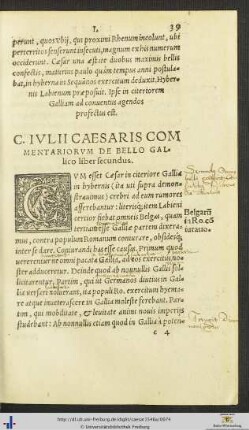 I. 39
perunt, quos Vbij, qui proximi Rhenum incolunt, ubi
perterritos senserunt insecuti, magnum ex his numerum
occiderunt. Cæsar una æstate duobus maximis bellis
confectis, maturius paulo quàm tempus anni postula-
bat, in hyberna in Sequanos exercitum deduxit. Hyber-
nis Labienum præposuit. Ipse in citeriorem
Galliam ad conuentus agendos
profectus est.
C. IVLII CAESARIS COM
MENTARIORVM DE BELLO GAL-
lico liber secundus.
CVM esset Cæsar in citeriore Gallia
in hybernis (ita uti supra demon-
strauimus) crebri ad eum rumores
afferebantur: literisq́; item Labieni
certior fiebat omneis Belgas, quam
tertiam esse Galliæ partem dixera-
mus, contra populum Romanum coniurare, obsidesq́;
inter se dare. Coniurandi has esse causas. Primum quòd
uererentur ne omni pacata Gallia, ad eos exercitus no-
ster adduceretur. Deinde quòd ab nonnullis Gallis sol-
licitarentur. Partim, qui ut Germanos diutius in Gal-
lia uersari noluerant, ita populi Ro. exercitum hyema-
re atque inueterascere in Gallia moleste ferebant. Par-
tim, qui mobilitate, & leuitate animi nouis imperijs
studebant: Ab nonnullis etiam quòd in Gallia à poten-
Belgarũ
in Ro. cõ
iuratio.
c 4
http://dl.ub.uni-freiburg.de/diglit/caesar1543bc/0074
© Universitätsbibliothek Freiburg